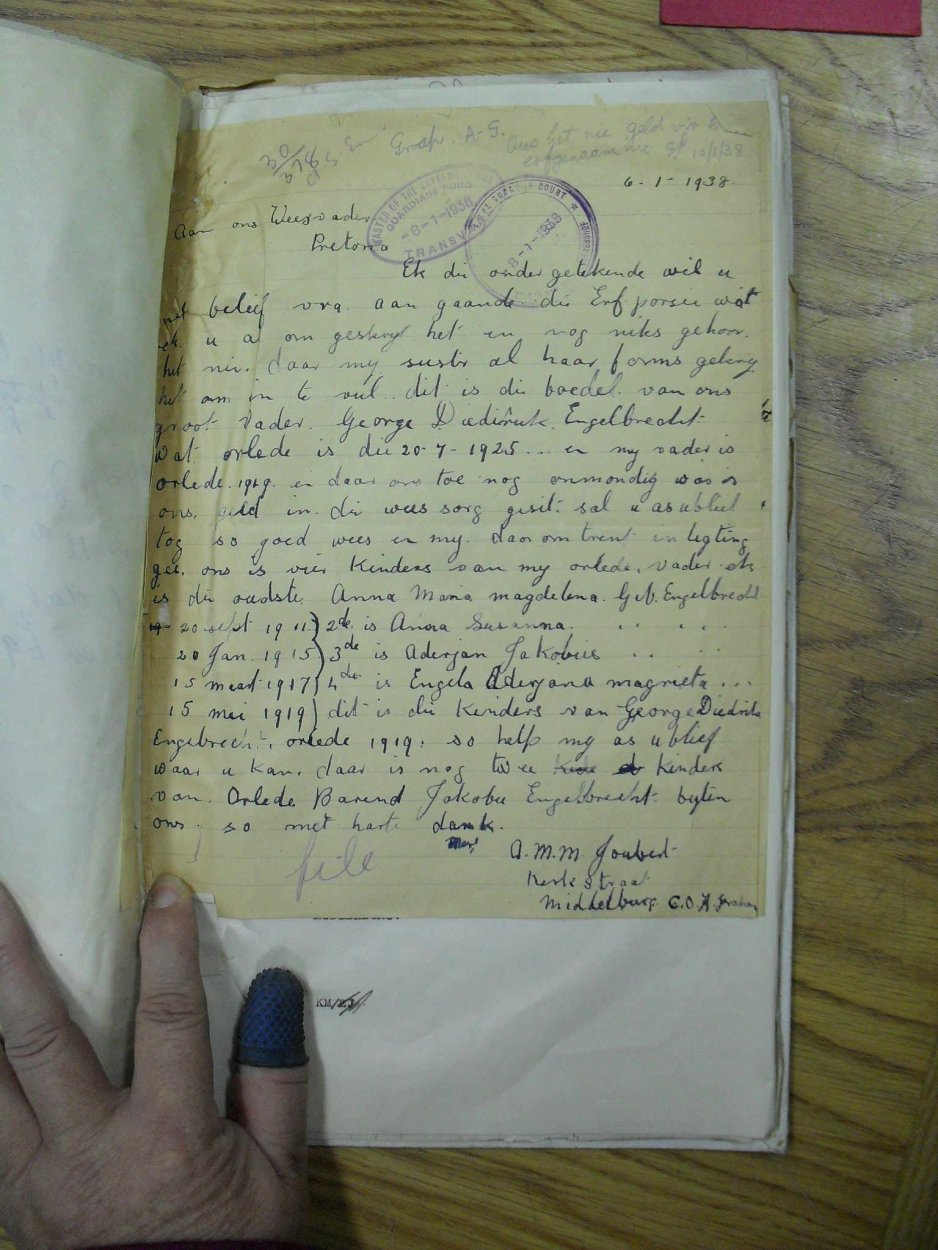 Grosp. A-G.
Ons het nie geld vir
erfgenaam nie 10/1/38
6-1-1938.
MASTER OF THE SUPREME
GUARDIANS FUND
-8-1-1938
TRANSVAAL
SUPREME COURT
8-1-1938
Aan ons Weesvader
Pretoria
Ek die onder getekende wil u
beleif vra. aan gaande die Erf porsie wat
ek. u al om geskryf het en nog niks gehoor.
het nie. daar my sustr al haar forms gekryg
het om in te vul. dit is die boedel van ons
groot vader. George Diedirick Engelbrecht
wat orlede is die 20-7-1925... en my vader is
orlede. 1919. en daar ons toe nog onmondig was is
ons. geld in die wees sorg gesit. sal u as ublief
tog so goed wees en my. daar om trent in ligting
gee. ons is vier Kinders van my orlede. vader ek
is die oudste Anna Maria magdelena. Geb. Engelbrecht
20 sept 1911.) 2de is Anna Susanna. .. .. ..
20 Jan. 1915) 3de is Aderjan Jakobus .. ..
15 maart 1917) 4de is Engela Aderjana magrieta ...
15 mei 1919) dit is die Kinders van George Diedrik
Engebrecht. orlede 1919. so help my as ublief
waar u kan. daar is nog twee Kinders
van. Orlede Barend Jakobus Engelbrecht. byten
ons. so met harte dank.
file
A. M. M Joubert
Kerk straat
Middelburg C.O.
KM/